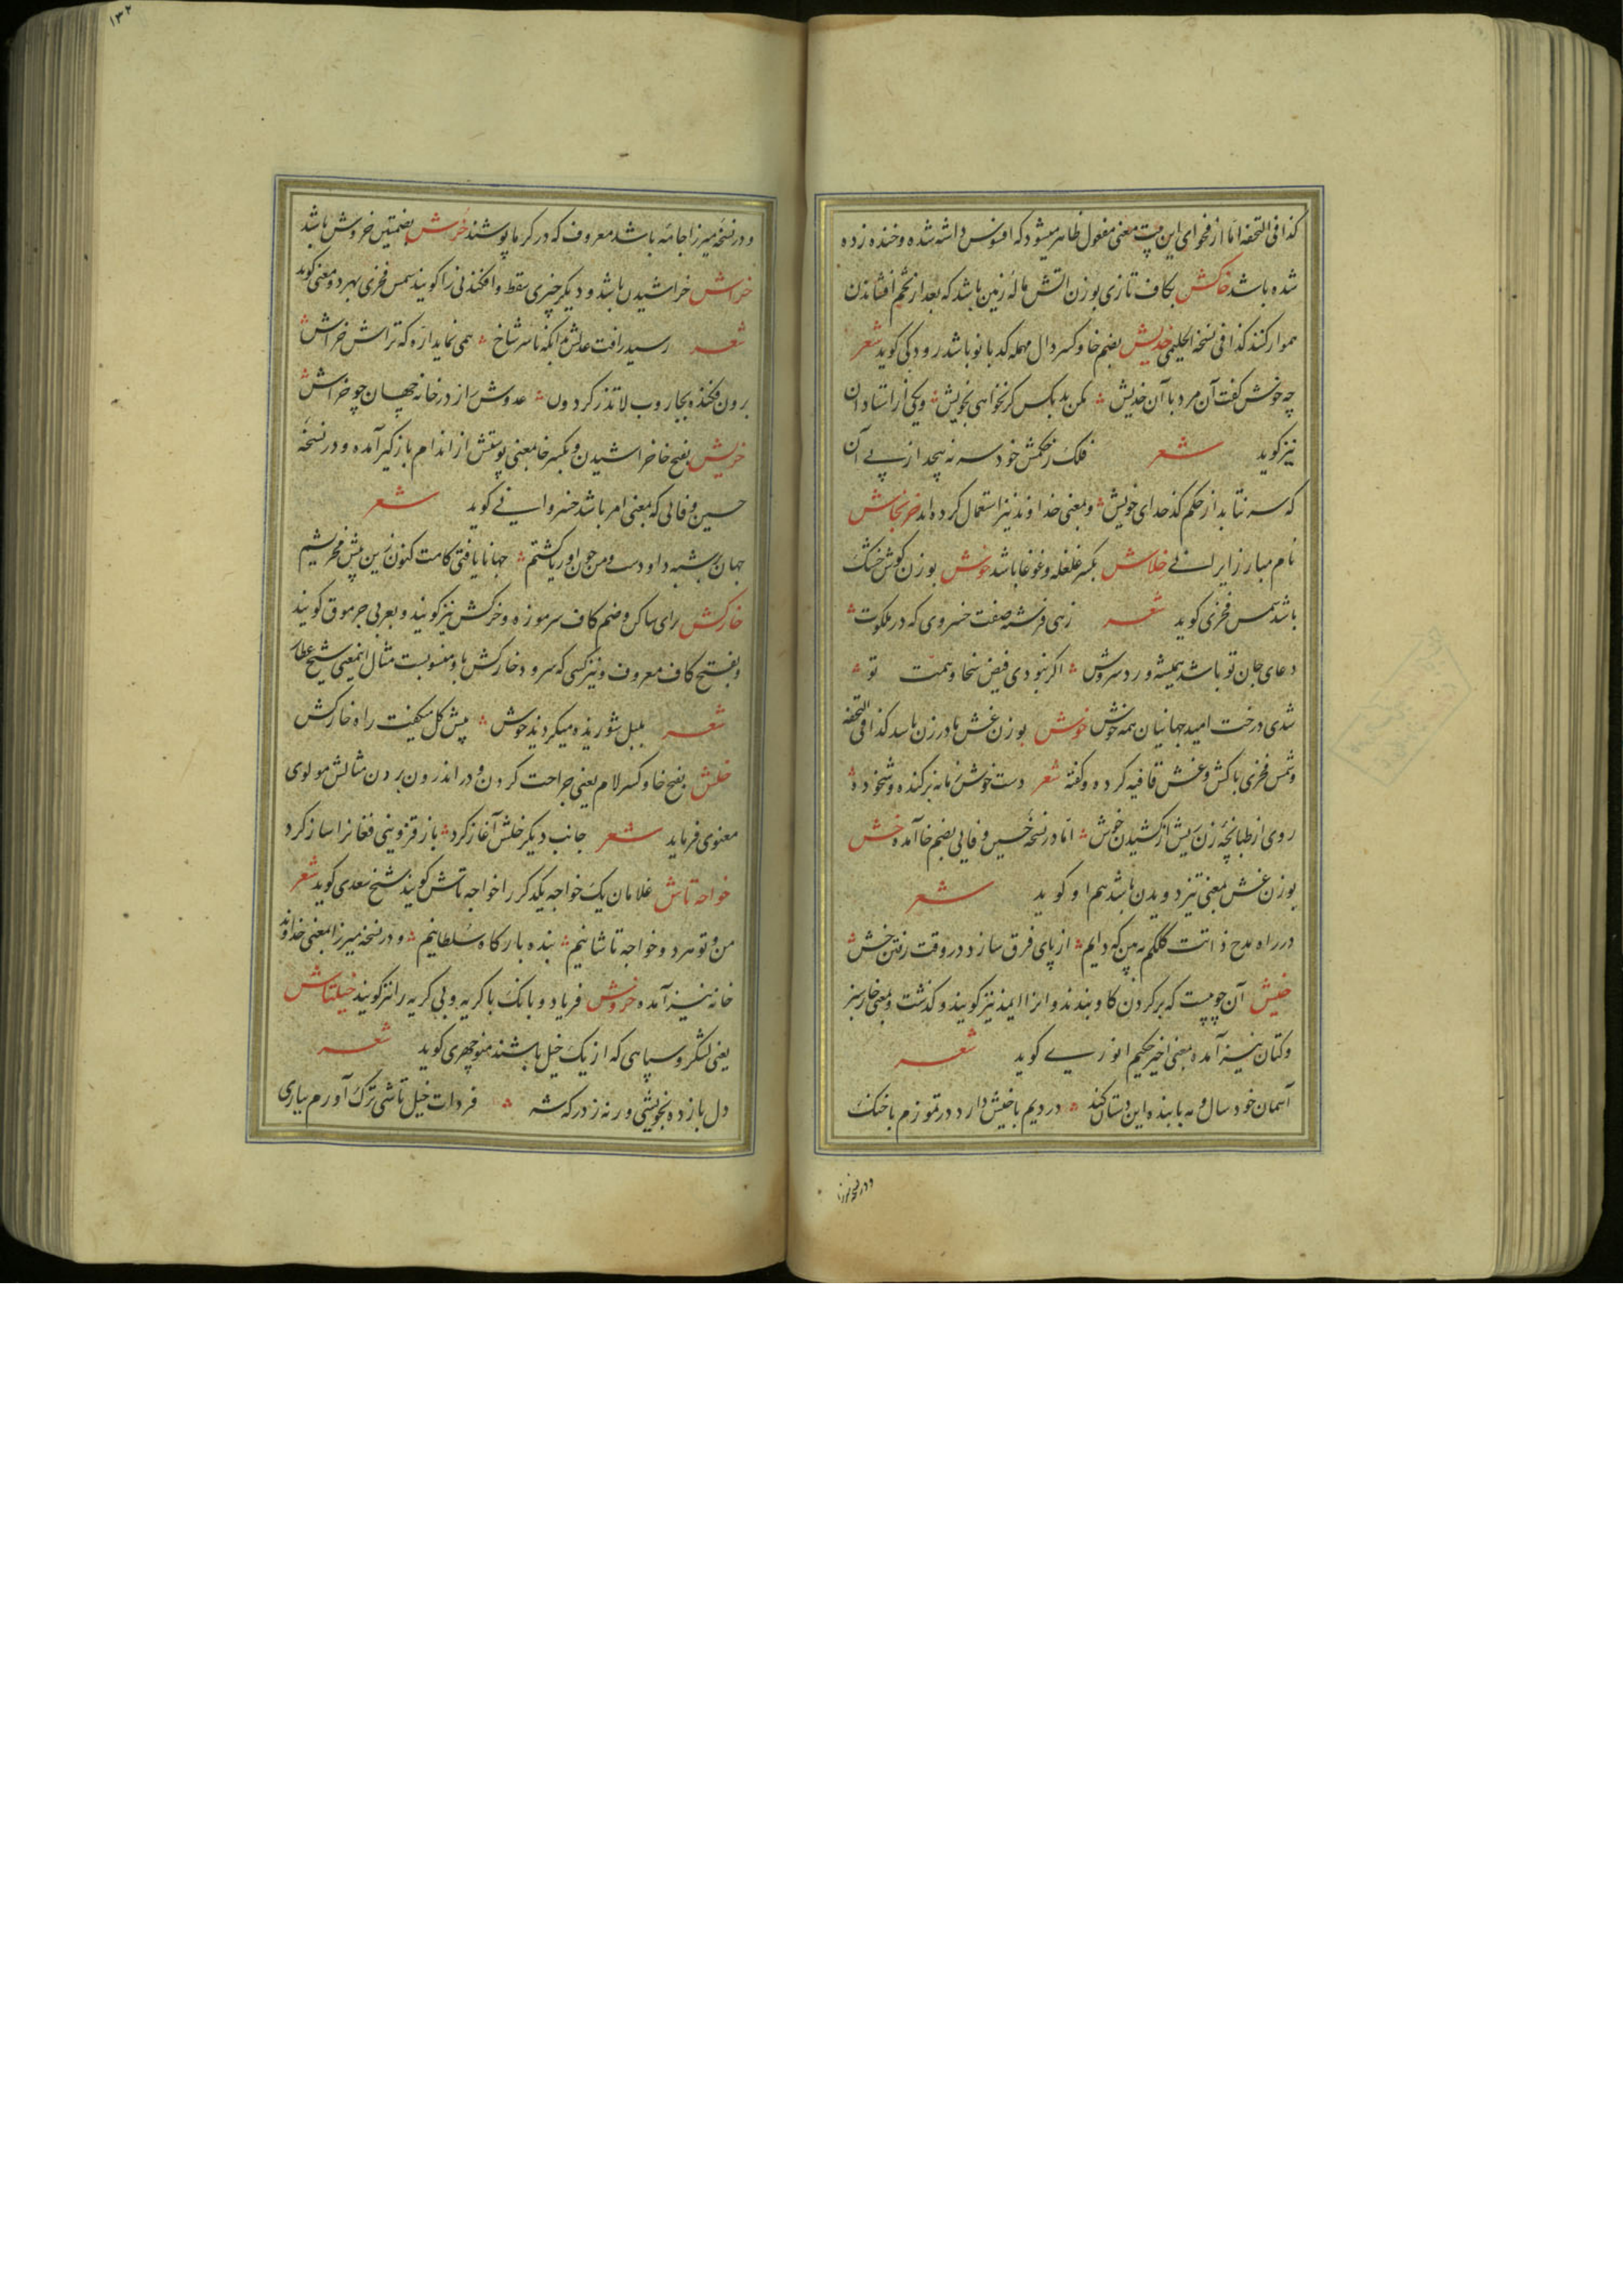 کذا فی التحفه اما از فحوای این بیت معنی مفعول ظاهر میشود که افسوس داشته شده و خنده زده
شده باشد خاکش بکاف تازی بوزن آتش ماله زمین باشد که بعد از تخم افشاندن
هموار کنند کذا فی نسخة الحلیمی خدیش بضم خا و کسر دال مهمله کدبانو باشد رودکی کوید شعر
چه خوش کفت آن مرد با آن خدیش مکن بد بکس کر نخواهی بخویش و یکی از استادان
نیز کوید شعر فلک ز حکمش خود سر نه پیچد از پی آن
که سر نتابد از حکم کدخدای خویش و بمعنی خداوند نیز استعمال کرده اند خرنجاش
نام مبارز ایرانی خلاش بکسر غلغله و غوغا باشد خوش بوزن کوش خشک
باشد شمس فخری کوید شعر زهی فرشته صفت خسروی که در ملکوت
دعای جان تو باشد همیشه ورد سروش اکر نبودی فیض سخا و همت تو
شدی درخت امید جهانیان همه خوش خوش بوزن غش مادر زن باشد کذا فی التحفه
و شمس فخری باکش و غش قافیه کرده و کفته شعر دست خوش زمانه برکنده و شخوده
روی از طبانچه زن ریش از کشیدن خوش اما در نسخه حسین وفایی بضم خا آمده خش
بوزن غش بمعنی تیز دویدن باشد هم او کوید شعر
در راه مدح ذاتت کلکم ببین که دایم از پای فرق سازد در وقت رفتن خش
خیش آن چوبیست که بر کردن کاو بندند و انرا ایمد نیز کویند و کذشت و بمعنی خارسبز
و کتان نیز آمده بمعنی اخیر حکیم انوری کوید شعر
آسمان خود سال و مه با بنده این دستان کند در دیم با خیش دارد در تموزم با خنک
و در نسخه میرزا
۱۳۲
و در نسخه میرزا جامه باشد معروف که در کرما پوشند خرش بضمتین خروش باشد
خراش خراشیدن باشد و دیکر چیزی سقط و افکندنی را کویند شمس فخری بهر دو معنی کوید
شعر رسید رافت عدلش بدانکه تا سر شاخ همی نماید از اره که تراش خراش
برون فکنده بجاروب لاتذر کردون عدوش را ز در خانه جهان چو خراش
خریش بفتح خا خراشیدن و بکسر خا بمعنی پوستش از اندام باز کیر آمده و در نسخه
حسین وفایی که بمعنی امر باشد خسروانی کوید شعر
جهان بر شبه داودست و من چون اوریا کشتم جهانا یافتی کامت کنون زین بیش مخریشم
خارکش برای ساکن و ضم کاف سرموزه و خرکش نیز کویند و بعربی جرموق کویند
و بفتح کاف معروف و نیز کسی که سرود خارکش باو منسوبست مثال اینمعنی شیخ عطار
شعر بلبل شوریده میکردید خوش پیش کل میکفت راه خارکش
خلش بفتح خا و کسر لام یعنی جراحت کردن و در اندرون بردن مثالش مولوی
معنوی فرماید شعر جانب دیکر خلش آغاز کرد باز قزوینی فغانرا ساز کرد
خواجه تاش غلامان یک خواجه یکدکر را خواجه تاش کویند شیخ سعدی کوید شعر
من و تو هر دو خواجه تاشانیم بنده بارکاه سلطانیم و در نسخه میرزا بمعنی خداوند
خانه نیز آمده خروش فریاد و بانک با کریه و بی کریه را نیز کویند خیلتاش
یعنی لشکر و سپاهی که از یک خیل باشند منوچهری کوید شعر
دل باز ده بخویشی ورنه ز درکه شه فردات خیل تاشی ترک آورم بیاری